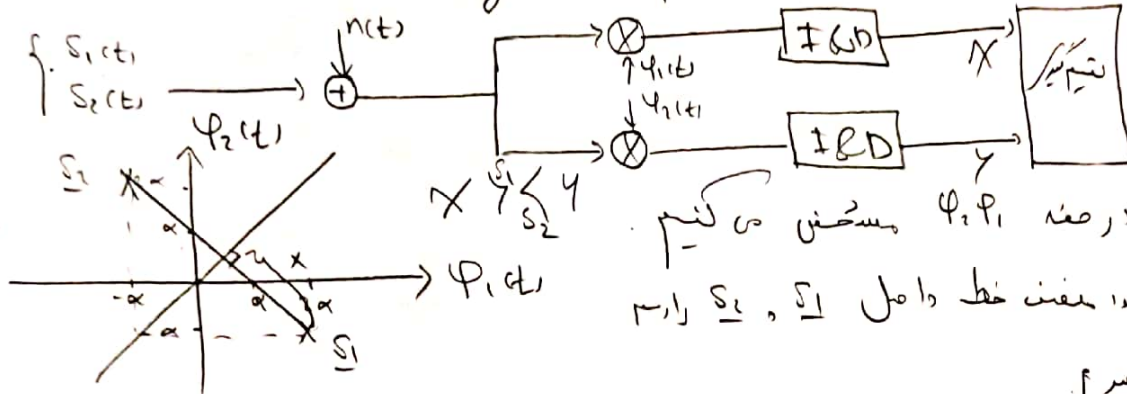 n(t)
S₁(t)
S₂(t)
+
φ₁(t)
φ₂(t)
I&D
I&D
X
Y
تصمیم‌گیر
φ₂(t)
S₂
α
α
-α
α
x
α
-α
φ₁(t)
S₁
X ≷ Y
S₁
S₂
در صفحه φ₂φ₁ مشخص می کنیم.
منصف خط واصل S₁ و S₂ را رسم